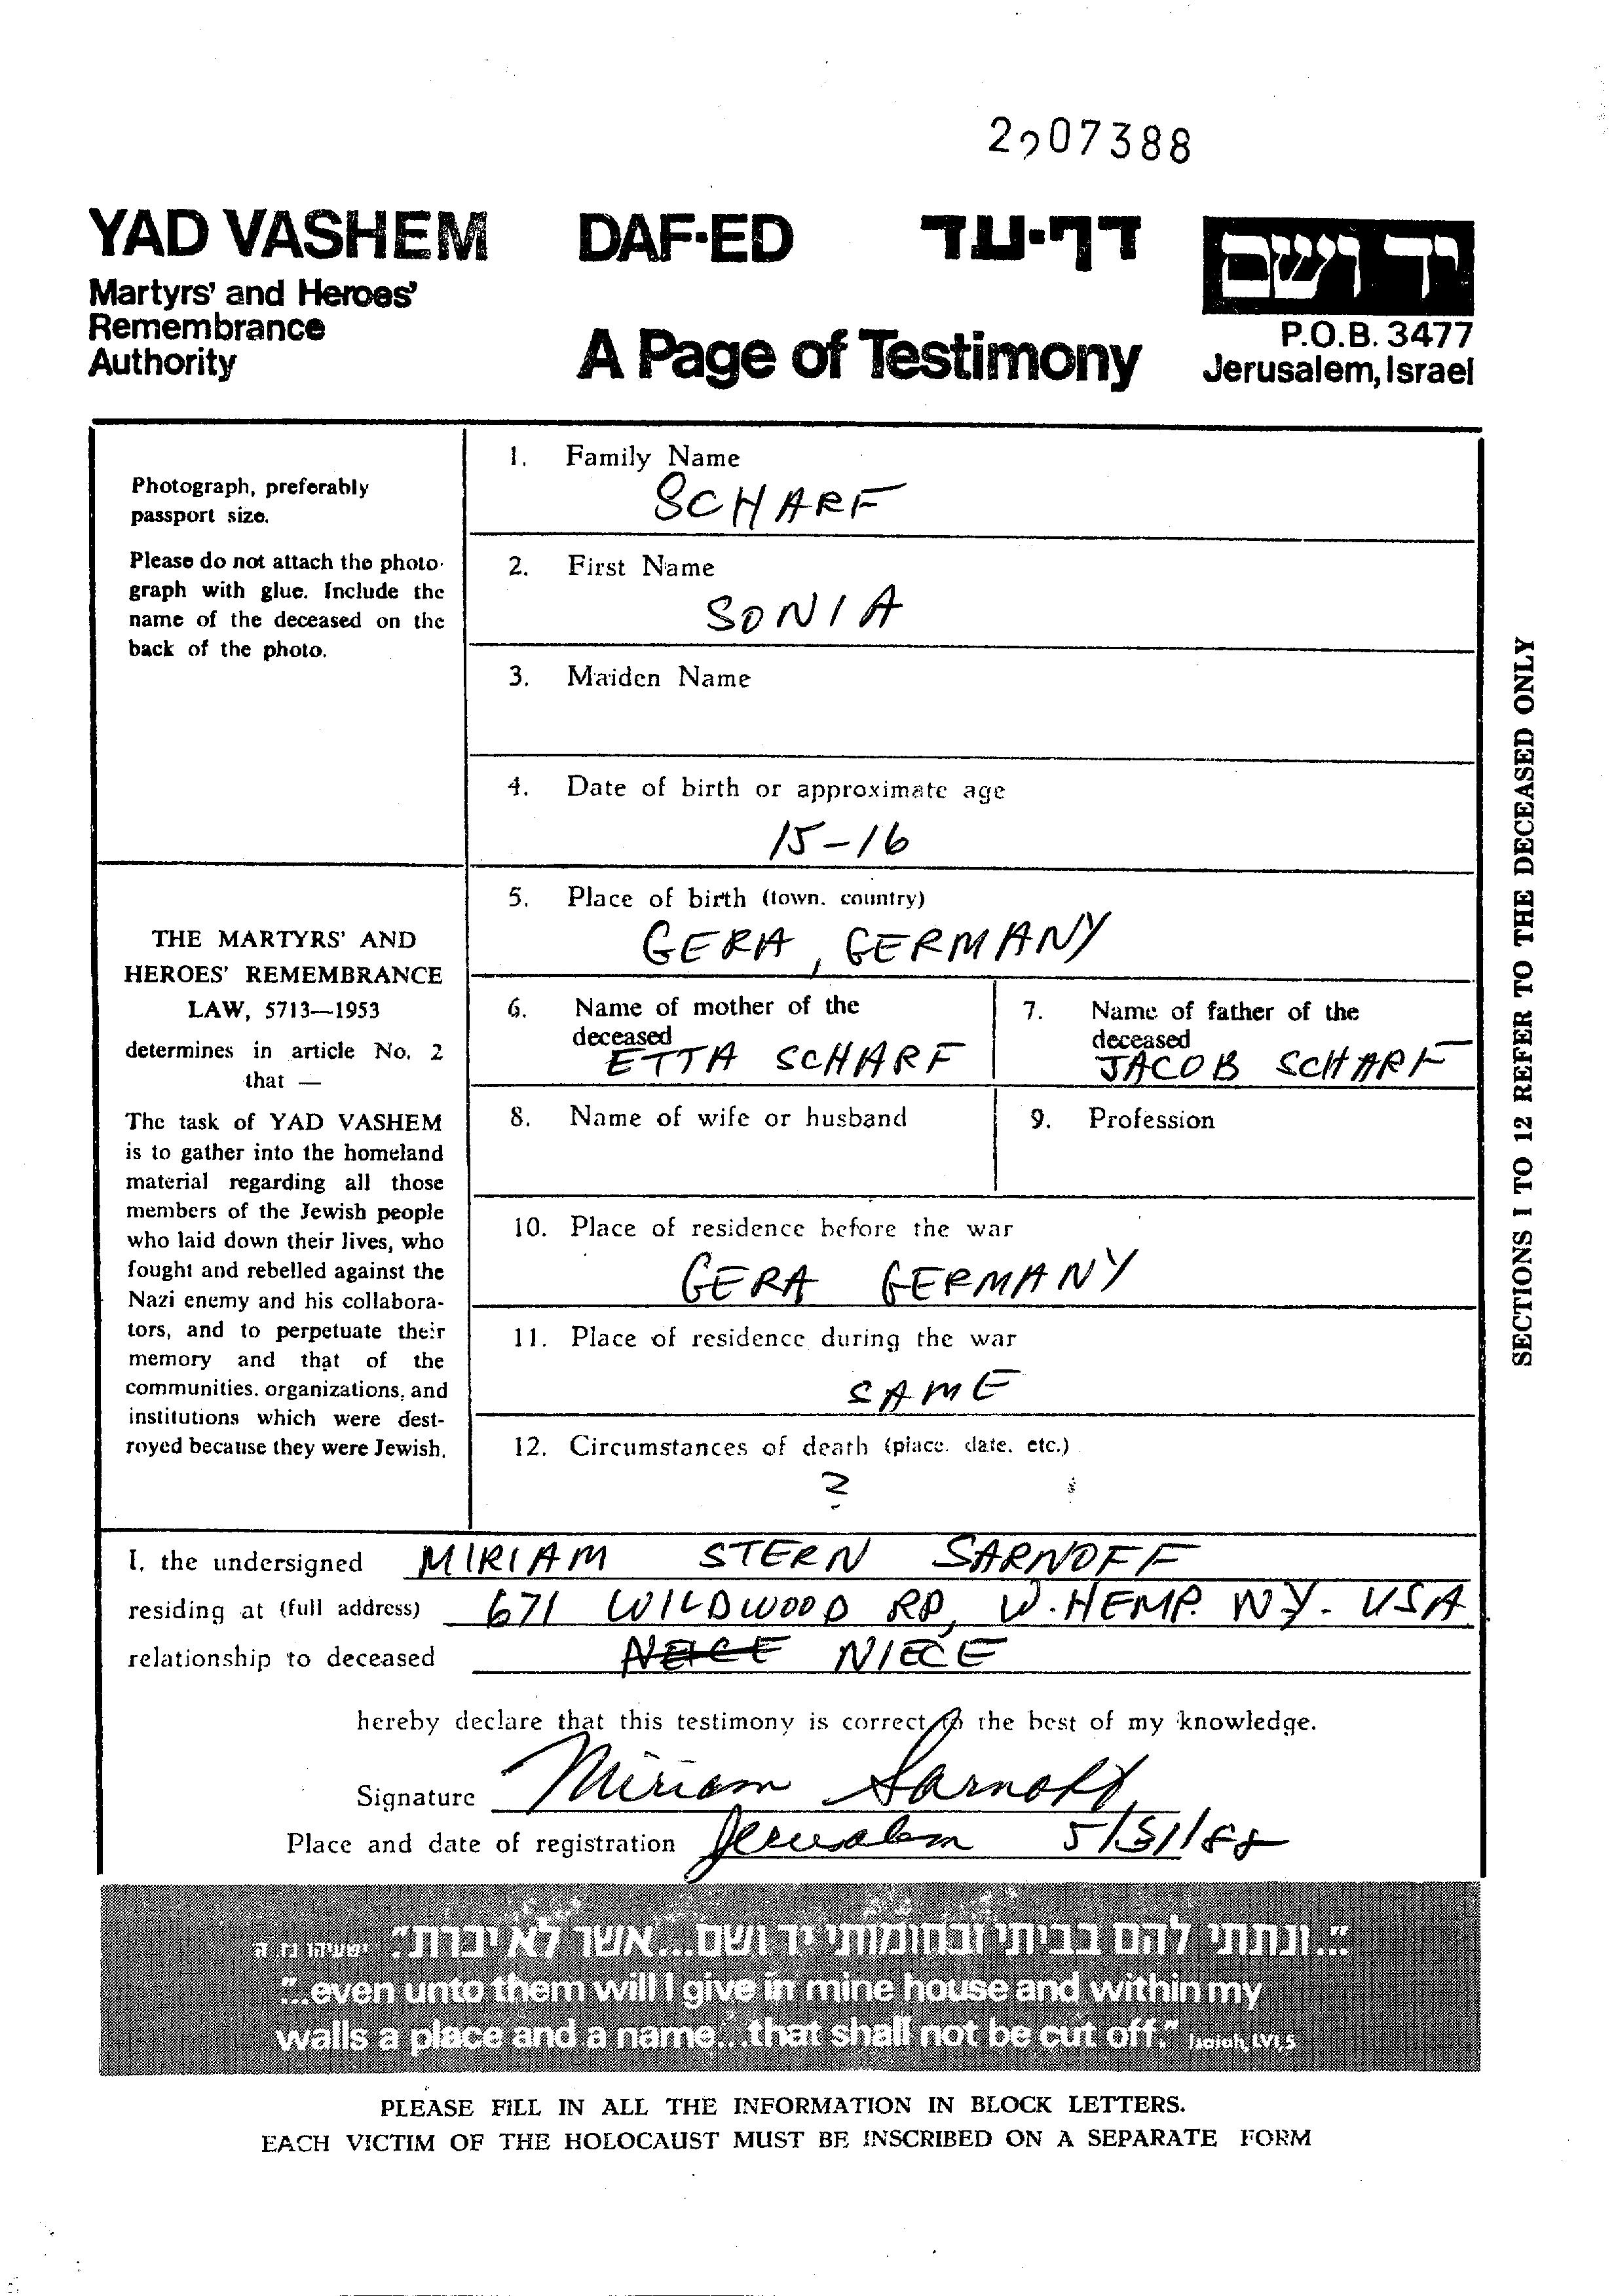 2207388
YAD VASHEM
Martyrs' and Heroes'
Remembrance
Authority
DAF-ED
דף-עד
A Page of Testimony
יד ושם
P.O.B. 3477
Jerusalem, Israel
Photograph, preferably
passport size.
Please do not attach the photo-
graph with glue. Include the
name of the deceased on the
back of the photo.
THE MARTYRS' AND
HEROES' REMEMBRANCE
LAW, 5713—1953
determines in article No. 2
that —
The task of YAD VASHEM
is to gather into the homeland
material regarding all those
members of the Jewish people
who laid down their lives, who
fought and rebelled against the
Nazi enemy and his collabora-
tors, and to perpetuate their
memory and that of the
communities, organizations, and
institutions which were dest-
royed because they were Jewish.
1. Family Name
SCHARF
2. First Name
SONIA
3. Maiden Name
4. Date of birth or approximate age
15-16
5. Place of birth (town, country)
GERA, GERMANY
6. Name of mother of the
deceased
ETTA SCHARF
7. Name of father of the
deceased
JACOB SCHARF
8. Name of wife or husband
9. Profession
10. Place of residence before the war
GERA GERMANY
11. Place of residence during the war
SAME
12. Circumstances of death (place, date, etc.)
?
SECTIONS 1 TO 12 REFER TO THE DECEASED ONLY
I, the undersigned MIRIAM STERN SARNOFF
residing at (full address) 671 WILDWOOD RD, W. HEMP. NY. USA
relationship to deceased NIECE
hereby declare that this testimony is correct to the best of my knowledge.
Signature Miriam Sarnoff
Place and date of registration Jerusalem 5/31/88
"...ונתתי להם בביתי ובחומותי יד ושם...אשר לא יכרת" ישעיהו נו, ה
"...even unto them will I give in mine house and within my
walls a place and a name...that shall not be cut off." Isaiah, LVI, 5
PLEASE FILL IN ALL THE INFORMATION IN BLOCK LETTERS.
EACH VICTIM OF THE HOLOCAUST MUST BE INSCRIBED ON A SEPARATE FORM